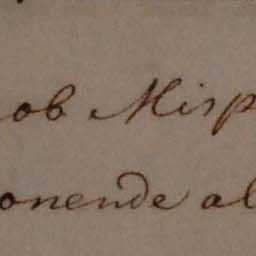 ob Misp
onende al